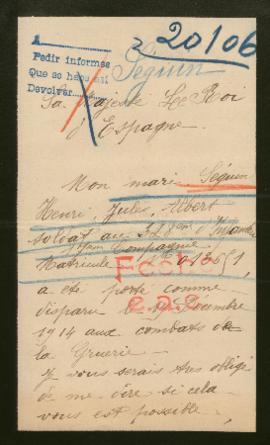 A
Pedir informes
Que se
Devolver
20106
Séguin
Sa Majesté Le Roi
d'Espagne
Mon mari Séguin
Henri, Jules, Albert
soldat au 328em d'Infanterie
Compagnie
Matricule
Fecha
a été porté comme
disparu le Décembre
1914 aux combats de
la Gruerie.
Je vous serais très obligé
de me dire si cela
vous est possible